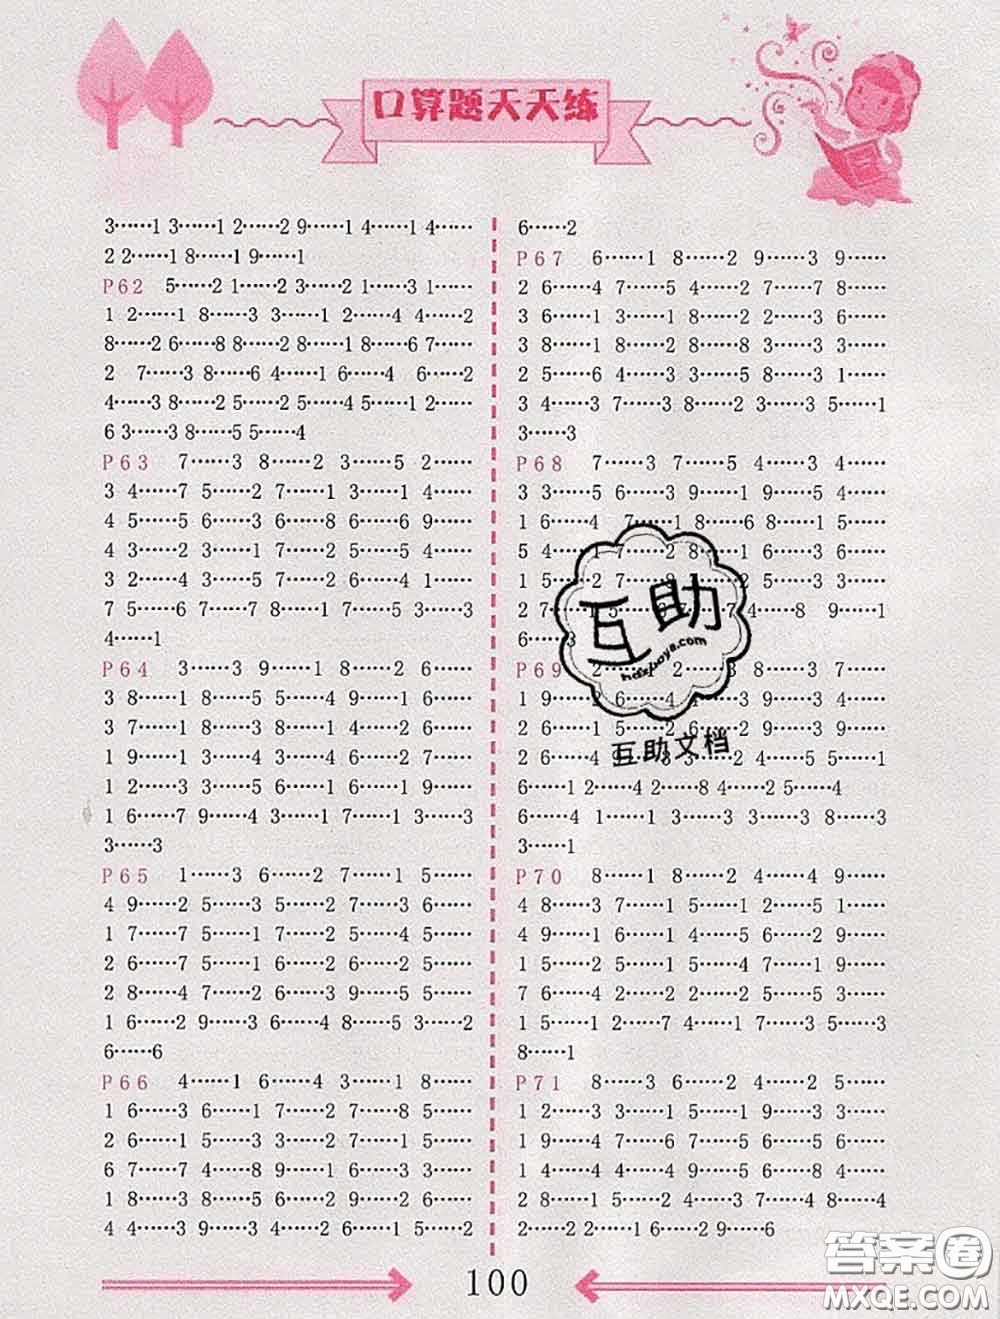 口算题天天练
3……1 3……1 2……2 9……1 4……1 4……
2 2……1 8……1 9……1
P62 5……2 1……2 3……2 1……3 1……
1 2……1 8……3 3……1 2……4 4……2
8……2 6……8 8……2 8……1 8……6 7……
2 7……3 8……6 4……1 6……4 6……2
4……3 8……2 5……2 5……4 5……1 2……
6 3……3 8……5 5……4
P63 7……3 8……2 3……5 2……
3 4……7 5……2 7……1 3……1 4……
4 5……5 6……3 6……8 6……6 9……
4 3……2 3……1 7……2 5……5 4……
3 2……4 3……5 7……2 6……4 1……
7 5……6 7……7 8……1 7……5 3……3
4……1
P64 3……3 9……1 8……2 6……
3 8……1 8……5 5……4 9……1 6……
3 7……1 3……3 8……1 4……2 9……
1 9……1 3……4 3……5 4……4 7……
1 2……3 3……5 6……1 6……1 9……
1 6……7 9……4 3……1 7……1 3……3
3……3
P65 1……3 6……2 7……1 5……
4 9……2 5……3 5……2 7……3 6……
1 7……7 5……1 7……2 5……4 5……
2 6……2 5……1 6……2 6……2 7……
2 8……4 7……2 6……3 9……5 5……
1 6……2 9……3 6……4 8……5 3……2
6……6
P66 4……1 6……4 3……1 8……
1 6……3 6……1 7……2 7……8 5……
2 6……1 5……3 3……2 7……1 5……
6 7……7 4……8 9……1 6……3 3……
1 8……3 8……5 6……2 9……2 6……
4 4……3 9……3 4……2 6……1 5……2
6……2
P67 6……1 8……2 9……3 9……
2 6……4 7……5 4……2 7……7 8……
3 6……1 3……1 8……2 2……3 6……
3 8……1 8……2 8……8 3……3 3……
2 5……6 4……3 3……5 8……3 1……
3 4……3 7……3 8……2 3……3 5……1
3……3
P68 7……3 7……5 4……3 4……
3 3……5 6……3 9……1 9……5 4……
1 6……4 7……1 8……6 8……1 5……
5 4……1 7……2 8……1 6……3 6……
1 5……2 7…… 2 5……3 3……
2 7…… 7 4……8 9……1
6……3
P69 2…… 2……3 8……3 7……
1 9…… 6…… 4……5 3……4 2……
2 6……1 5……2 6……2 9……3 9……
2 6……4 9…… 3……2 4……5 5……
6……1 2……4 2……8 4……2 5……4
6……4 1……3 3……3 3……3 8……3
3……1
P70 8……1 8……2 4……4 9……
4 8……3 7……1 5……1 2……5 1……
4 9……1 6……1 4……5 6……2 9……
1 5……2 5……1 5……4 7……1 5……
7 6……4 2……2 2……2 5……5 3……
1 5……1 2……7 4……1 7……3 5……3
8……1
P71 8……3 6……2 4……2 5……
1 2……3 3……5 5……1 9……3 3……
1 9……4 7……6 7……5 6……5 6……
1 4……4 4……4 9……5 6……8 4……
2 8……1 5……2 4……3 7……4 8……4
2……2 2……1 6……2 9……6
100
互助
hdzuoye.com
互助文档
答案圈
MXQE.COM